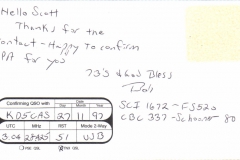 Hello Scott
Thanks for the
contact - Happy to confirm
PA for you
73's & God Bless
Bob
SCI 1672 - FS520
CBC 337 - Schooner 80
Confirming QSO with Day Month Year
KD5CAS 27 11 97
UTC MHz RST Mode 2-Way
51
PSE QSL